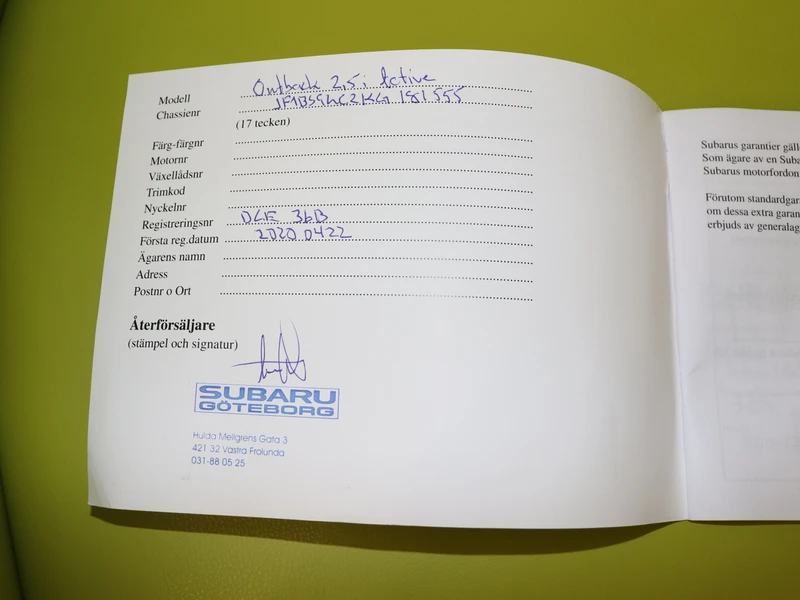 Modell Outback 2,5i Active
Chassienr JF1BS9LC2KG181555
(17 tecken)
Färg-färgnr
Motornr
Växellådsnr
Trimkod
Nyckelnr
Registreringsnr DLE 36B
Första reg.datum 20200422
Ägarens namn
Adress
Postnr o Ort
Återförsäljare
(stämpel och signatur)
SUBARU
GÖTEBORG
Hulda Mellgrens Gata 3
421 32 Västra Frölunda
031-88 05 25
Subarus garantier gäll
Som ägare av en Suba
Subarus motorfordon
Förutom standardgar
om dessa extra garan
erbjuds av generalag